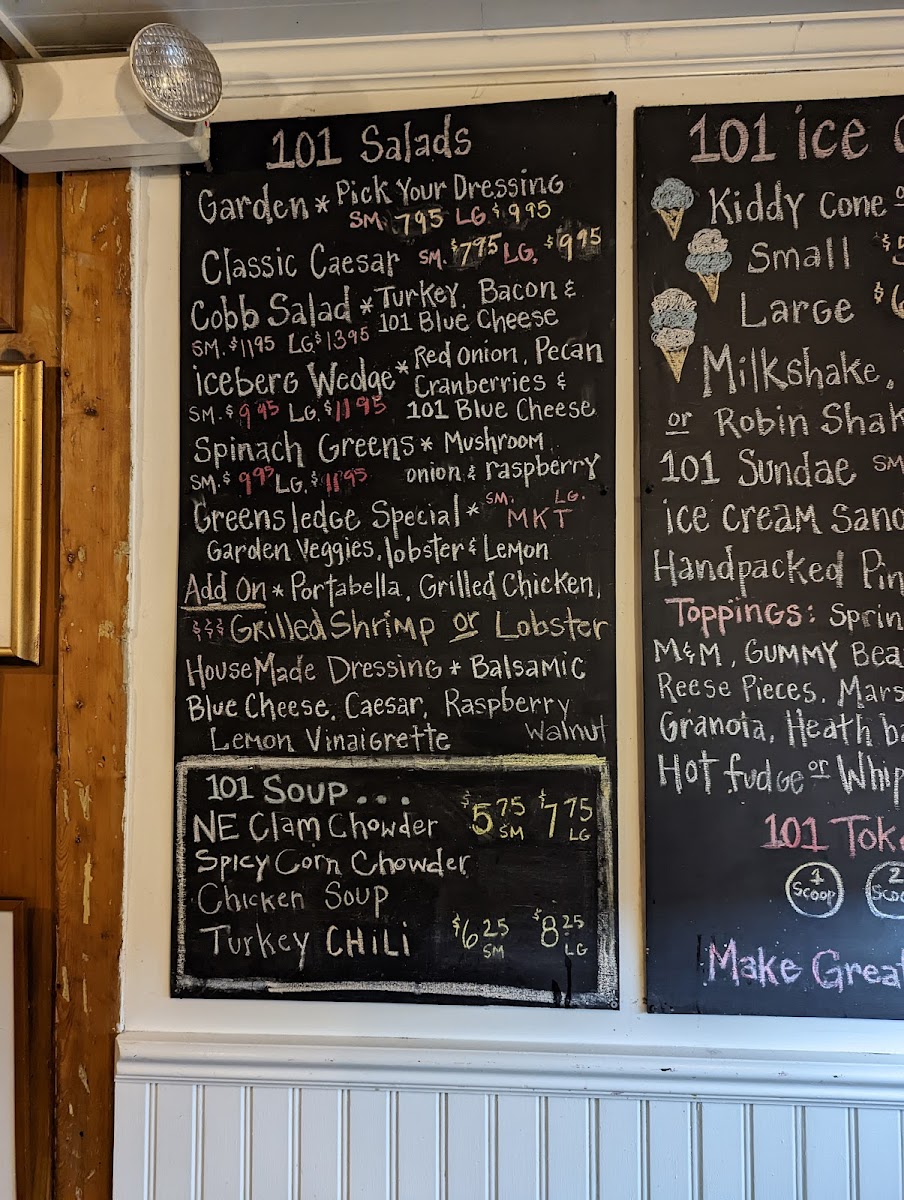 101 Salads
Garden * Pick Your Dressing
SM. 795 LG. $995
Classic Caesar SM. $795 LG. $995
Cobb Salad * Turkey, Bacon &
SM. $1195 LG $1395 101 Blue Cheese
Iceberg Wedge * Red onion, Pecan
Cranberries &
SM. $995 LG. $1195 101 Blue Cheese
Spinach Greens * Mushroom
SM. $995 LG. $1195 onion & raspberry
Greensledge Special * SM. LG.
MKT
Garden Veggies, lobster & Lemon
Add On * Portabella, Grilled Chicken,
$$$ Grilled Shrimp or Lobster
HouseMade Dressing * Balsamic
Blue Cheese, Caesar, Raspberry
Lemon Vinaigrette Walnut
101 Soup...
NE Clam Chowder $575 SM $775 LG
Spicy Corn Chowder
Chicken Soup
Turkey CHiLi $625 SM $825 LG
101 ice
Kiddy cone
Small
Large
Milkshake,
or Robin Shak
101 Sundae SM
ice cream sand
Handpacked Pin
Toppings: Sprin
M&M, GUMMY Bea
Reese Pieces, Mars
Granola, Heath ba
Hot fudge or Whip
101 Toke
1 Scoop 2 Scoo
Make Great